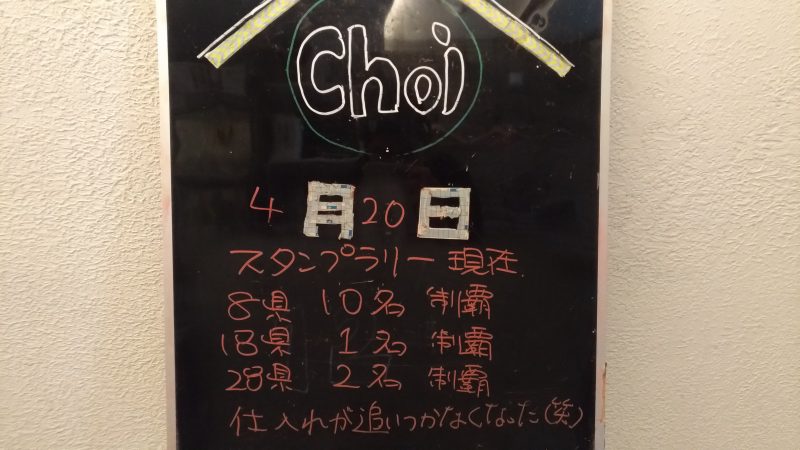 Choi
4月20日
スタンプラリー現在
8県 10名 制覇
18県 1名 制覇
28県 2名 制覇
仕入れが追いつかなくなった(笑)